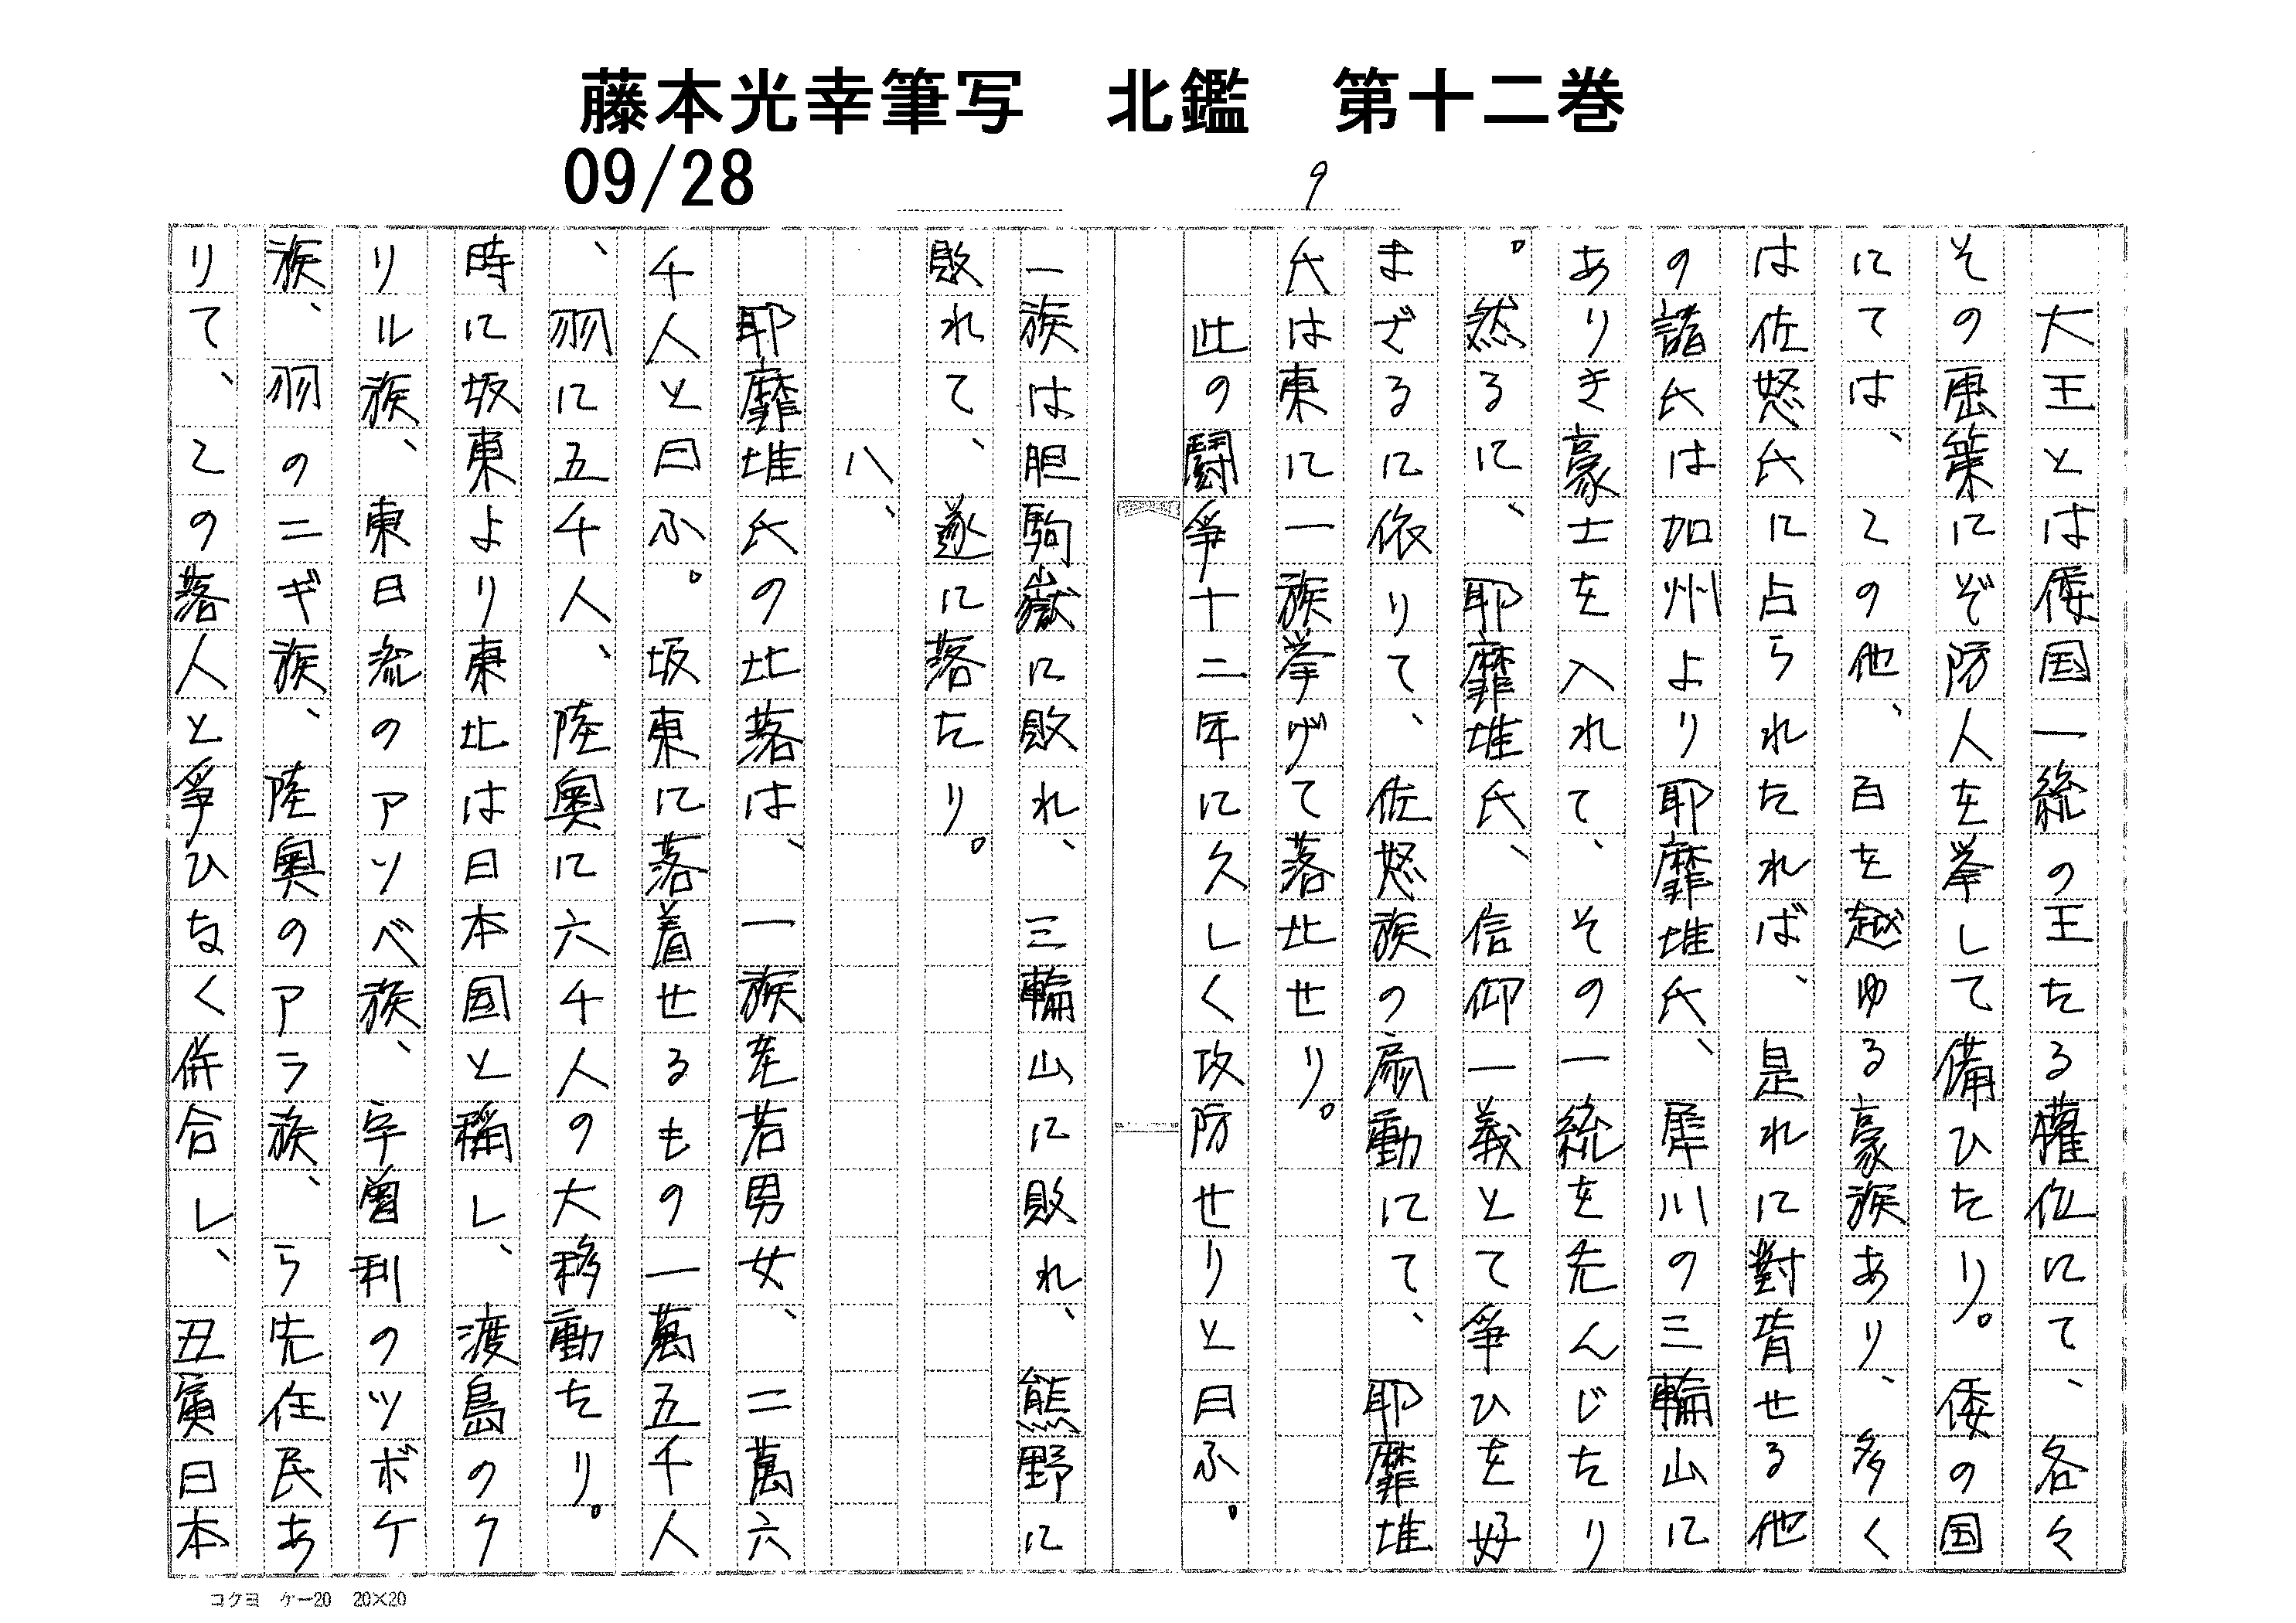 藤本光幸筆写　北鑑　第十二巻
09/28
9
　大王とは倭国一統の王たる権位にて、各々
その画策にぞ防人を挙して備ひたり。倭の国
にては、この他、百を越ゆる豪族あり、多く
は佐怒氏に占られたれば、是れに對背せる他
の諸氏は加州より耶靡堆氏、犀川の三輪山に
ありき豪士を入れて、その一統を先んじたり
。然るに、耶靡堆氏、信仰一義とて争ひを好
まざるに依りて、佐怒族の扇動にて、耶靡堆
氏は東に一族挙げて落北せり。
　此の闘争十二年に久しく攻防せりと曰ふ。
一族は胆駒嶽に敗れ、三輪山に敗れ、熊野に
敗れて、遂に落たり。
　　　八、
　耶靡堆氏の北落は、一族老若男女、二萬六
千人と曰ふ。坂東に落着せるもの一萬五千人
、羽に五千人、陸奥に六千人の大移動たり。
時に坂東より東北は日本国と稱し、渡島のク
リル族、東日流のアソベ族、宇曽利のツボケ
族、羽のニギ族、陸奥のアラ族、ら先住民あ
りて、この落人と争ひなく併合し、丑寅日本
コクヨ　ケー20　20×20